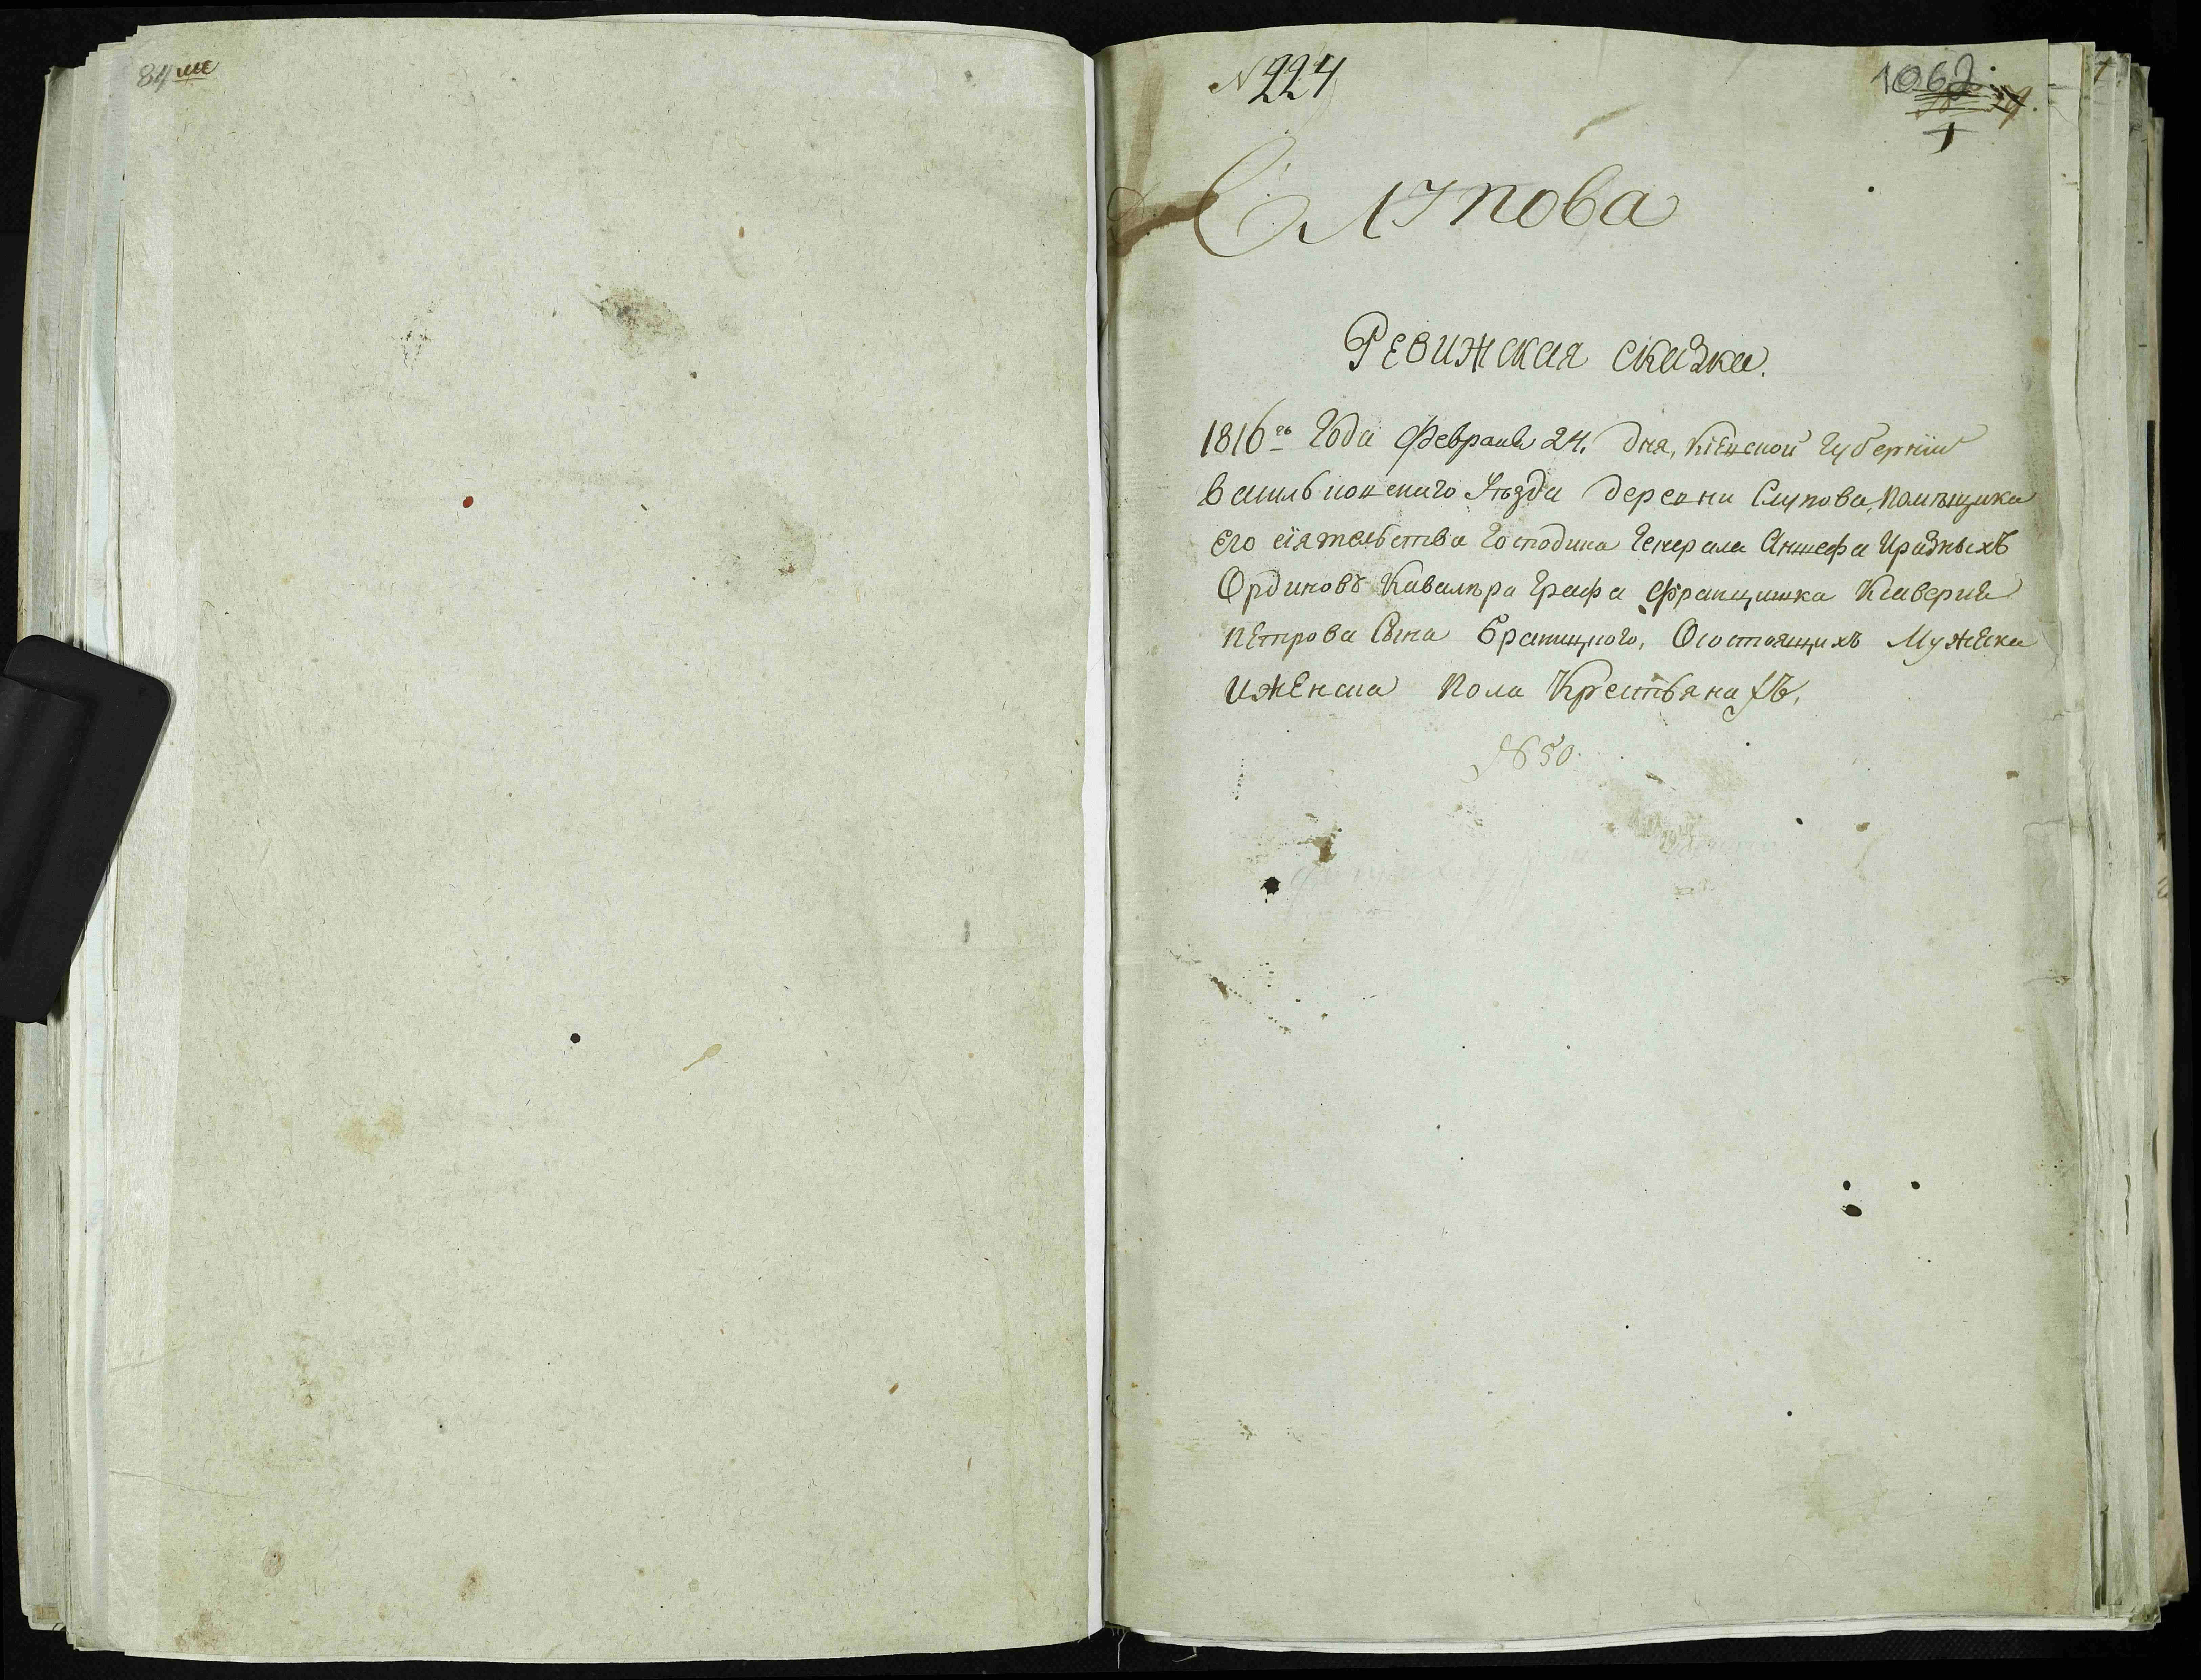 84
N 224
1062
1
Слупова
Ревижская сказка.
1816го Года Февраля 24. дня, Кіевской Губерніи
Васильковскаго Уѣзда деревни Слупова, Помѣщика
Его сіятельства Господина Генерала Аншефа Иразныхъ
Ординовъ Кавалѣра Графа Францишка Ксаверия
Петрова Сына Браницкого, Осостоящихъ Мужеска
Иженска Пола Крестьянахъ,
№ 50.